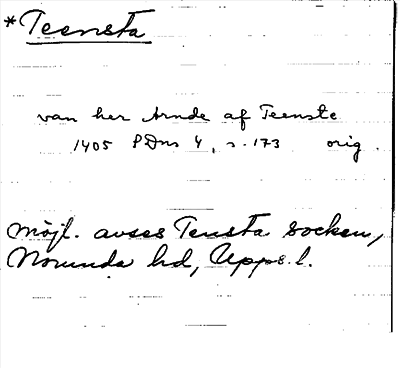 *Teensta
van her Arnde af Teenste
1405 PDns 4, s. 173 orig.
möjl. avses Tensta socken,
Norunda hd, Upps. l.